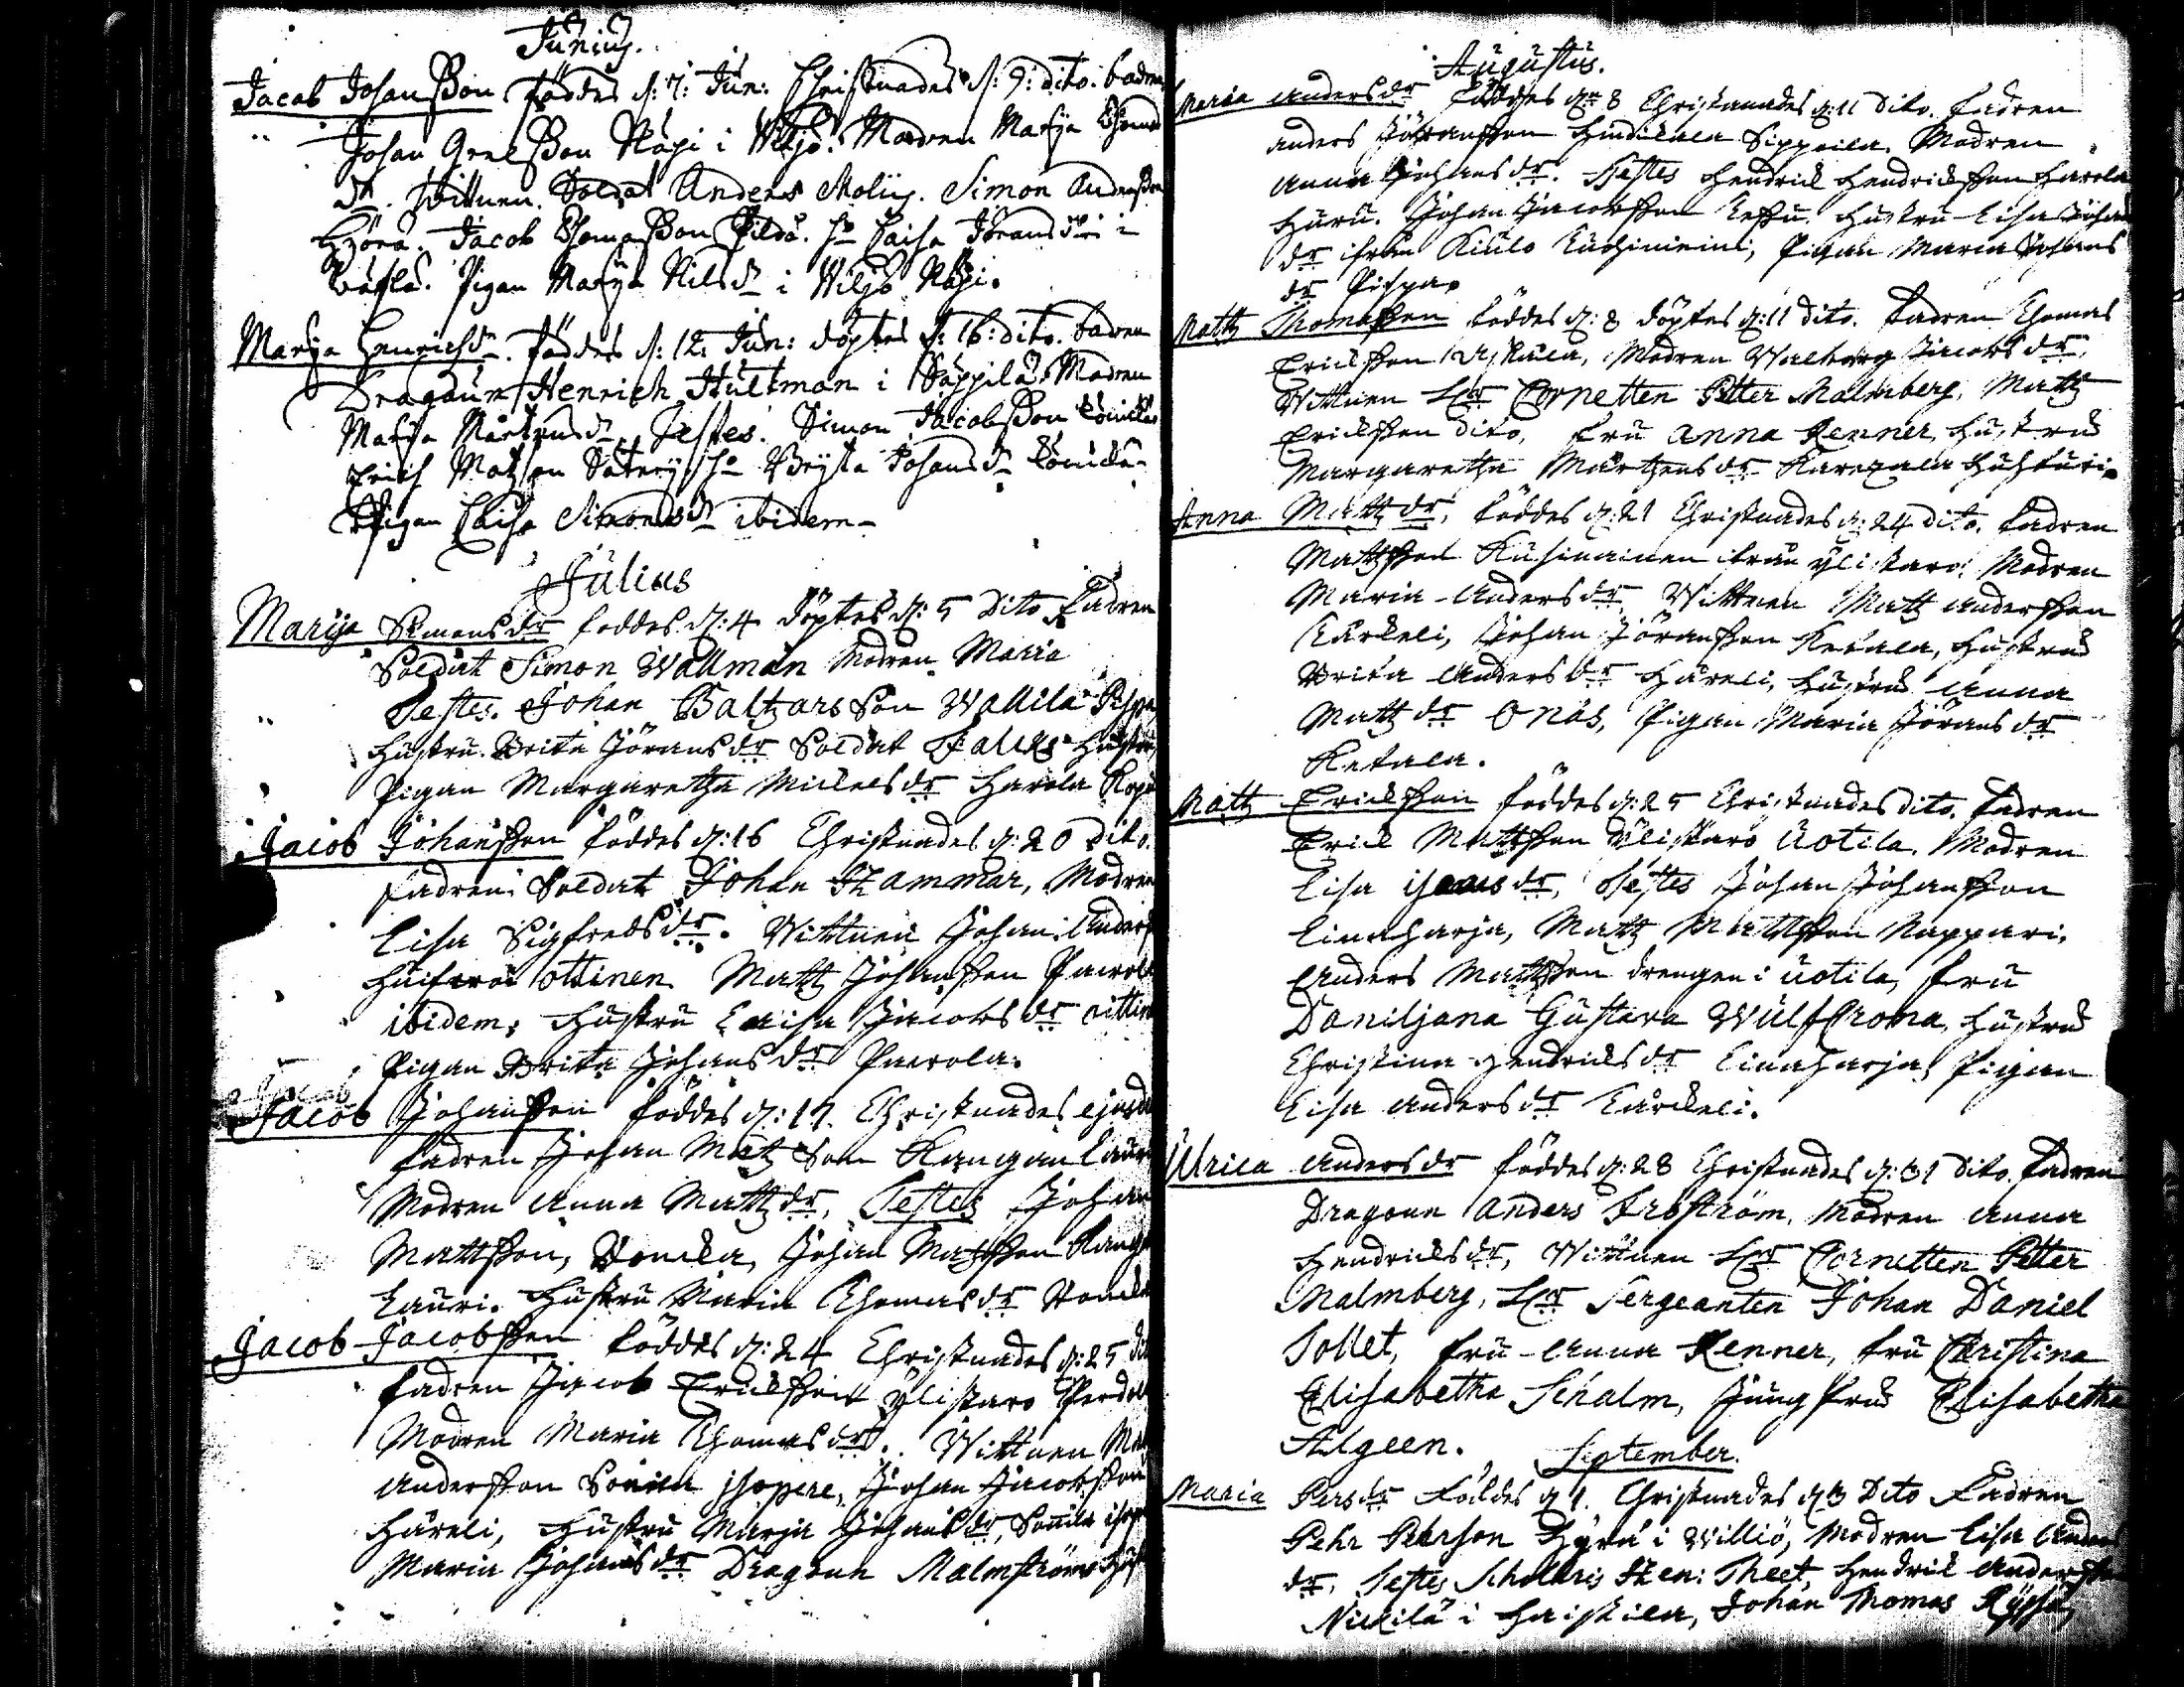 Junius.
Jacob Johansson föddes d: 7: Jun: Christnades d: 9: dito. fadren
Johan Grelsson Näpi i Wiljo. Modren Marija Thomæ
dr. Wittnen. Soldat Anders Molin. Simon Andersson
Hyörä. Jacob Thomasson Pildä. h. Caisa Jörans dr i
Pigan Marija Nils dr i Wiljo Näpi.
Marija Henrichsdr. föddes d: 12. Jun: döptes d: 16: dito. fadren
Dragaun Henrich Hultman i Säppilä Modren
Marija Mårtensdr. Testes. Simon Jacobsson
Erich Matzson h. Bryta Johansdr
Pigan Caisa Simonsdr ibidem
Julius
Marija Simonsdr föddes d: 4 döptes d: 5 Dito Fadren
Soldat Simon Wallman Modren Maria
Testes. Johan Baltzarsson Wallila
Hustru Brita Jöransdr Soldat Falcks Hustru
Pigan Margaretha Mickelsdr Harola
Jacob Johansson föddes d: 16 Christnades d: 20 Dito.
Fadren Soldat Johan Stammar, Modren
Lisa Sigfredsdr. Wittnen Johan Anders
Ottinen Matz Johansson Pairola
ibidem, Hustru Caisa Jacobsdr
Pigan Brita Johansdr Pairola.
Jacob
Jacob Johansson föddes d: 17. Christnades
Fadren Johan Matzson Kangan Lauri
Modren Anna Mattzdr, Testes Johan
Mattsson, Johan Matsson Kangan
Lauri. Hustru Maria Thomasdr
Jacob Jacobsson föddes d: 24 Christnades d: 25
Fadren Jacob Ericksson Ylistaro
Modren Maria Thomasdr. Wittnen
Andersson Sonila Isopere, Johan Jacobsson
Häreli, Hustru Marja Johansdr, Sonila
Maria Johansdr Dragoun Malmströms
Augustus.
Maria Andersdr föddes dn 8 Christnades d: 11 Dito. Fadren
Anders Jöransson Sippoila. Modren
Anna Johansdr. Testes Hendrick Hendricksson Harola
Huru. Johan Jacobsson Hustru Lisa Johans
dr ifrån Kiulo Pigan Maria Johans
dr Pispa
Matz Thomasson föddes d: 8 döptes d: 11 dito. Fadren Thomas
Ericksson Modren Walborg Jacobsdr,
Wittnen Hr Cornetten Petter Malmberg, Matz
Ericksson dito, Fru Anna Renner, Hustru
Margaretha Mårtensdr
Anna Mattzdr, föddes d: 21 Christnades d: 24 dito. Fadren
Mattsson Kusinainen ifrån Ylistaro. Modren
Maria Andersdr Wittnen Matz Andersson
Kärckeli, Johan Jöransson Ketala, Hustru
Brita Andersdr Häreli, Hustru Anna
Matzdr Onäs, Pigan Maria Jöransdr
Ketala.
Matz Ericksson föddes d: 25 Christnades dito. Fadren
Erick Mattsson Ylistaro Uotila. Modren
Lisa dr, Testes Johan Johansson
Linnaharja, Matz Mattsson Nappari,
Anders Mattsson drengen i Uotila, Fru
Daniljana Gustava Wulfcrona, Hustru
Christina Hendricksdr Linnaharja, Pigan
Lisa Andersdr Kärckeli.
Ulrica Andersdr föddes d: 28 Christnades d: 31 Dito. Fadren
Dragoun Anders Froström, Modren Anna
Hendricksdr, Wittnen Hr Cornetten Petter
Malmberg, Hr Sergeanten Johan Daniel
Sollet, Fru Anna Renner, Fru Christina
Elisabetha Schalm, Jungfru Elisabetha
Algeen.
September.
Maria Persdr föddes d 1. Christnades d 3 Dito Fadren
Pehr Pehrson Hyrä i Williö, Modren Lisa Anders
dr, Testes Scholaris Hen: Theet, Hendrick Andersson
Nickilä i Haistila, Johan Thomas